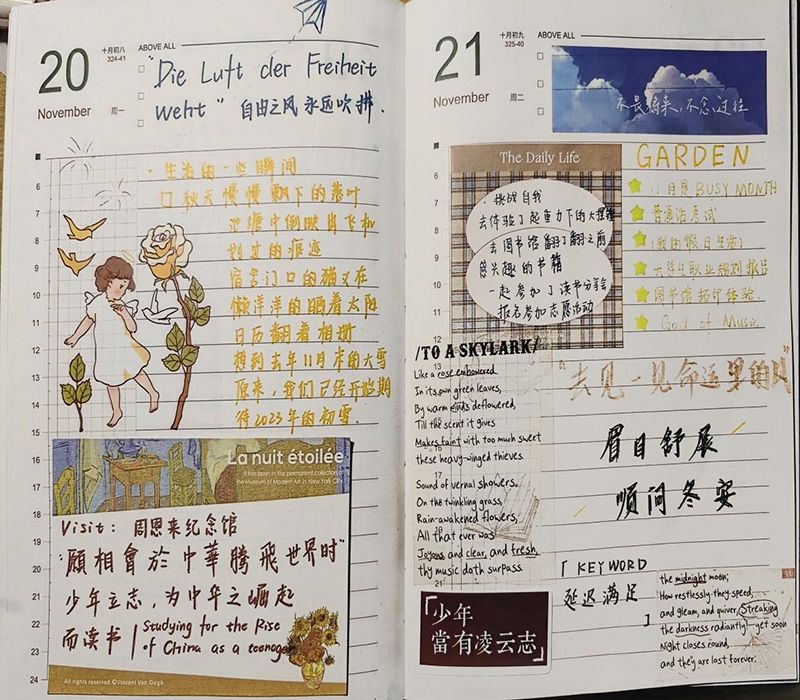 20
November
十月初八
324-41
周一
ABOVE ALL
"Die Luft der Freiheit
weht" 自由之风永远吹拂.
6
7
8
9
10
11
12
13
14
15
16
17
18
19
20
21
22
23
24
· 生活的一些瞬间
口 秋天慢慢飘下的落叶
池塘中倒映出飞机
划过的痕迹
宿舍门口的猫又在
懒洋洋的晒着太阳
日历翻着相册
想到去年11月末的大雪
原来,我们已经开始期
待2023年的初雪.
La nuit étoilée
It has been in the permanent collection of
the Museum of Modern Art in New York City
Visit: 周恩来纪念馆
"願相會於中華騰飛世界時"
少年立志,为中华之崛起
而读书
Studying for the Rise
of China as a teenager
All rights reserved.©Vincent Van Gogh
21
November
十月初九
325-40
周二
ABOVE ALL
不畏将来,不念过往
6
7
8
9
10
11
12
The Daily Life
· 挑战自我
去体验了起重力下的大摆锤
去图书馆翻了翻之前
感兴趣的书籍
一起参加了读书分享会
报名参加志愿活动
GARDEN
11月是 BUSY MONTH
普通话考试
《我的假日生活》
大学生职业规划报告
图书馆招仔体验.
God of Music
/TO A SKYLARK/
Like a rose embowered
In its own green leaves,
By warm winds deflowered,
Till the scent it gives
Makes faint with too much sweet
these heavy-winged thieves.
Sound of vernal showers,
On the twinkling grass,
Rain-awakened flowers,
All that ever was
Joyous and clear, and fresh,
thy music doth surpass.
"去见一见命运里的风"
眉目舒展
顺问冬安
「 KEYWORD
延迟满足
」
「少年
當有凌云志」
the midnight moon;
How restlessly they speed,
and gleam, and quiver, Streaking
the darkness radiantly!—yet soon
Night closes round,
and they are lost forever: